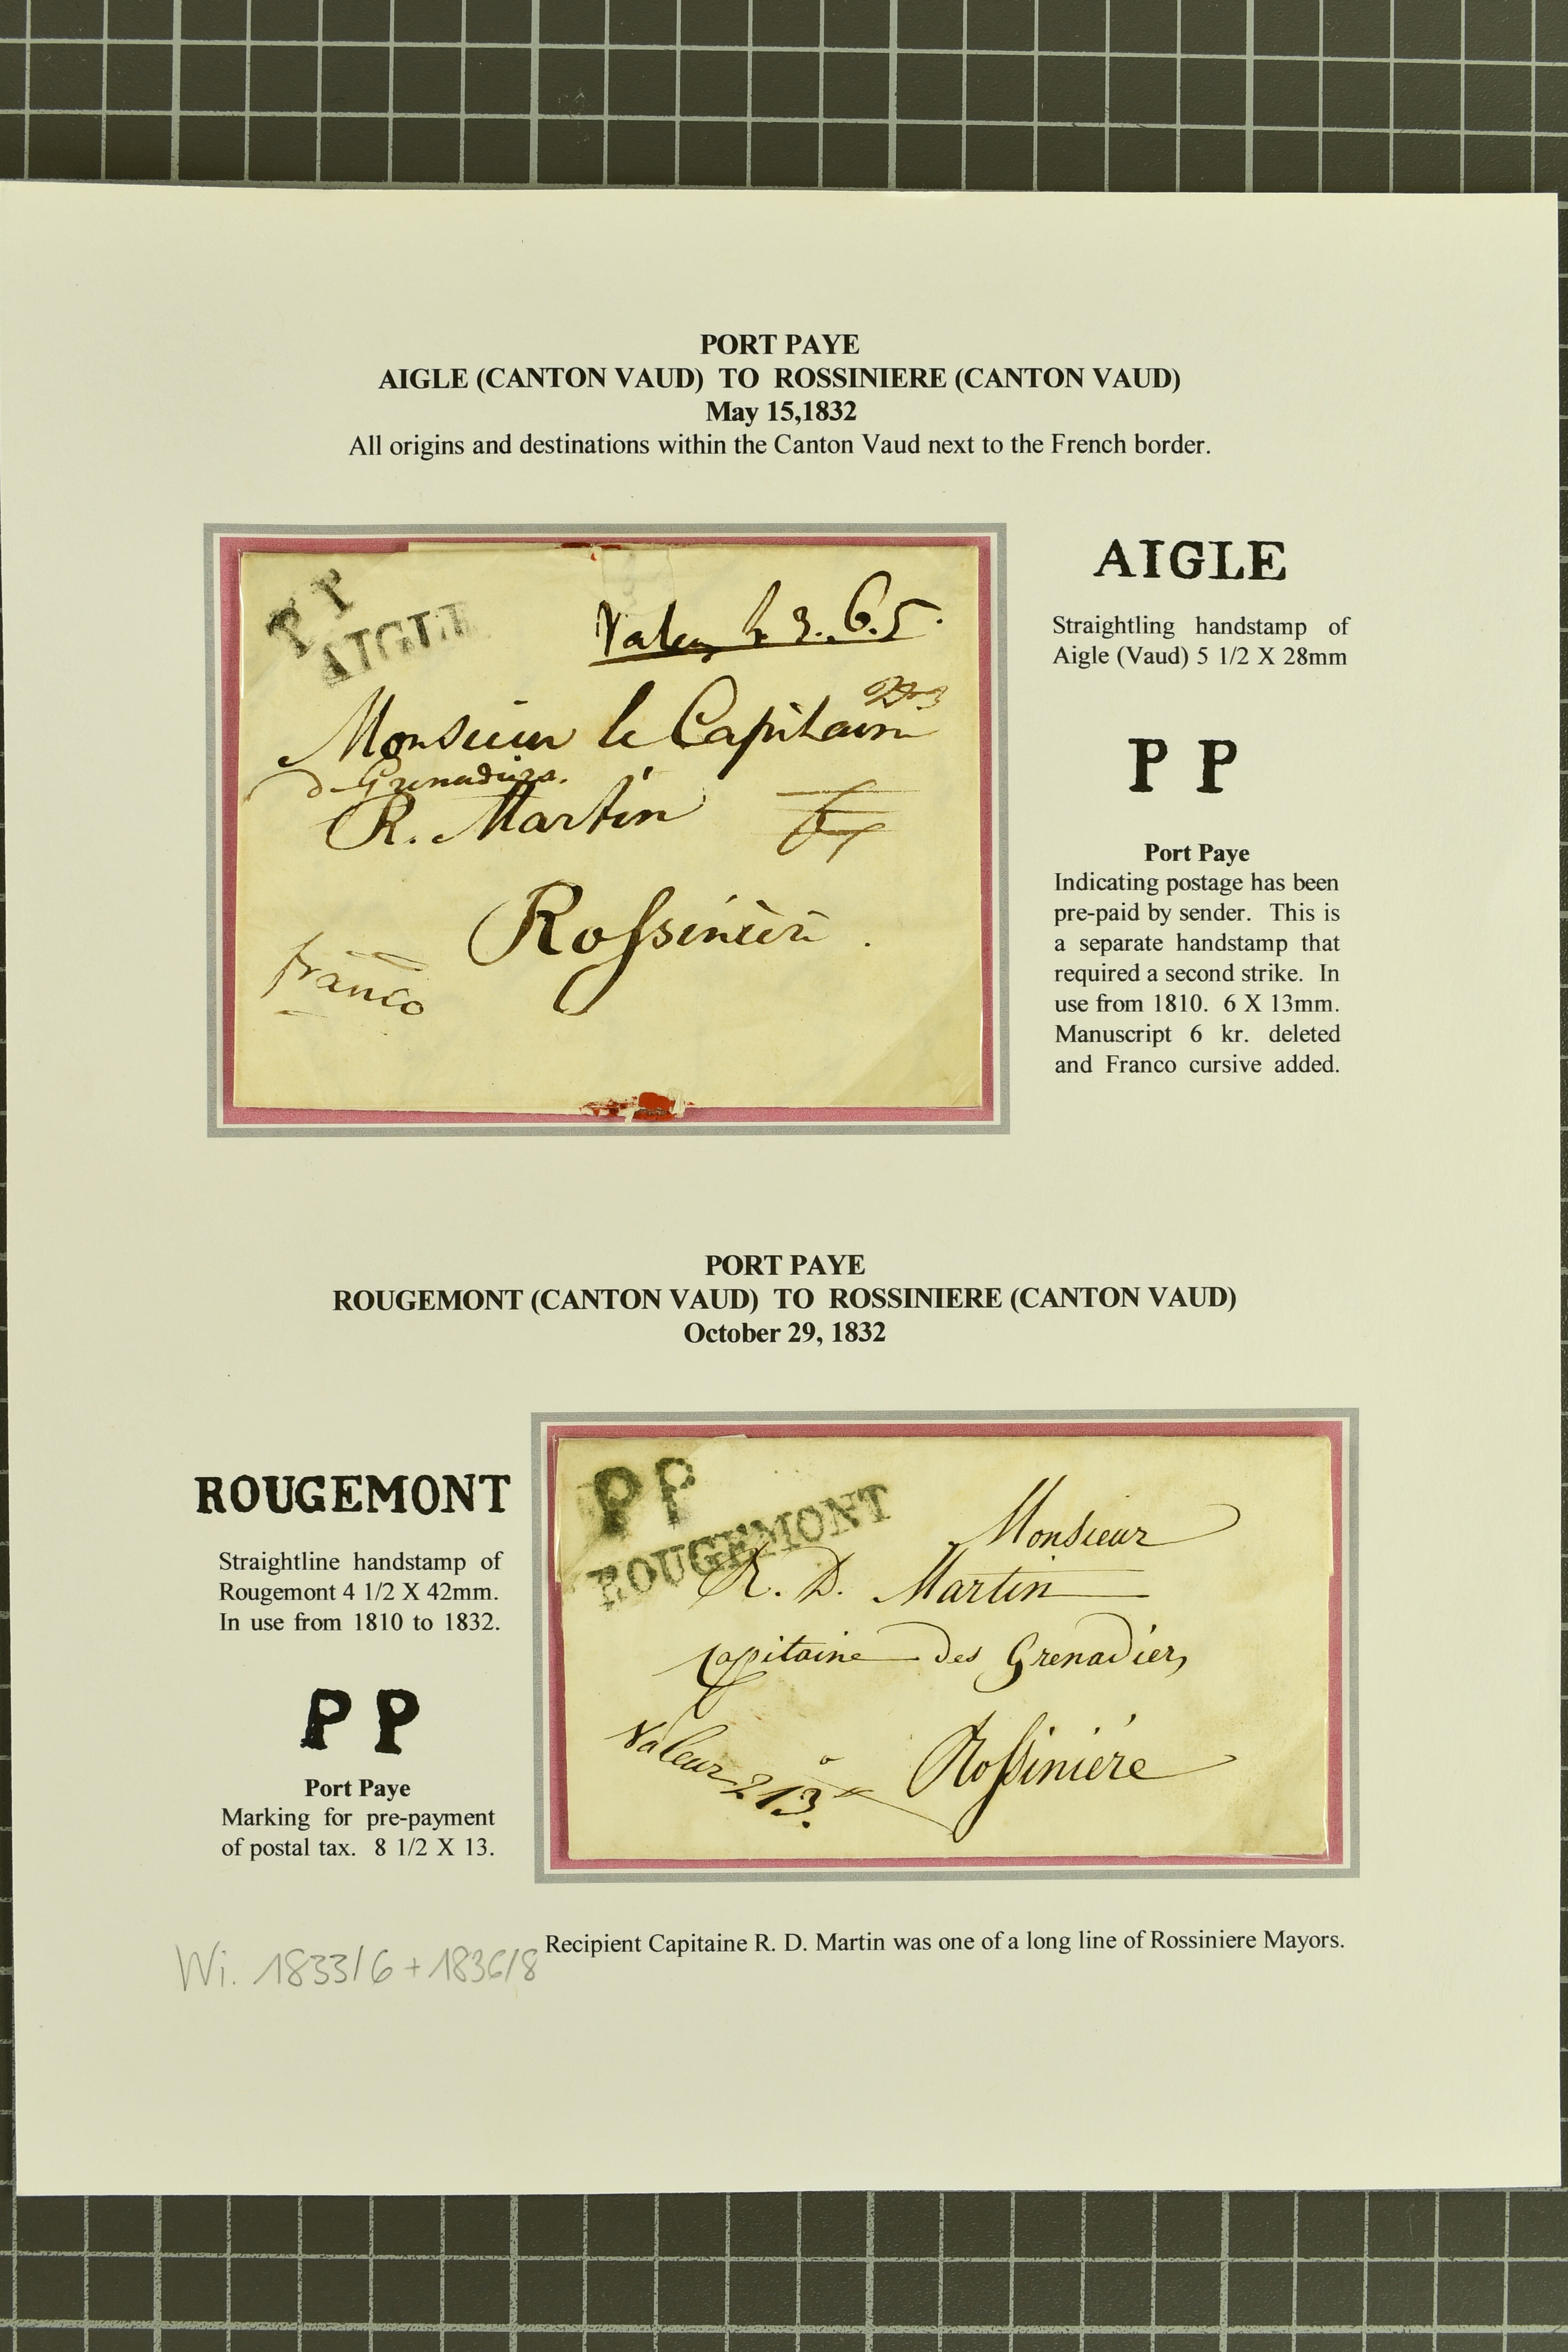 PORT PAYE
AIGLE (CANTON VAUD) TO ROSSINIERE (CANTON VAUD)
May 15,1832
All origins and destinations within the Canton Vaud next to the French border.
P P
AIGLE
Valeur 3.6.5.
Monsieur le Capitaine
d Grenadiers.
R. Martin
Rossinière.
franco
AIGLE
Straightling handstamp of
Aigle (Vaud) 5 1/2 X 28mm
P P
Port Paye
Indicating postage has been
pre-paid by sender. This is
a separate handstamp that
required a second strike. In
use from 1810. 6 X 13mm.
Manuscript 6 kr. deleted
and Franco cursive added.
PORT PAYE
ROUGEMONT (CANTON VAUD) TO ROSSINIERE (CANTON VAUD)
October 29, 1832
ROUGEMONT
Straightline handstamp of
Rougemont 4 1/2 X 42mm.
In use from 1810 to 1832.
P P
Port Paye
Marking for pre-payment
of postal tax. 8 1/2 X 13.
P P
ROUGEMONT
Monsieur
R. D. Martin
Capitaine des Grenadiers
Rossiniére
Valeur 213.
Recipient Capitaine R. D. Martin was one of a long line of Rossiniere Mayors.
Wi. 1833/6 + 1836/8